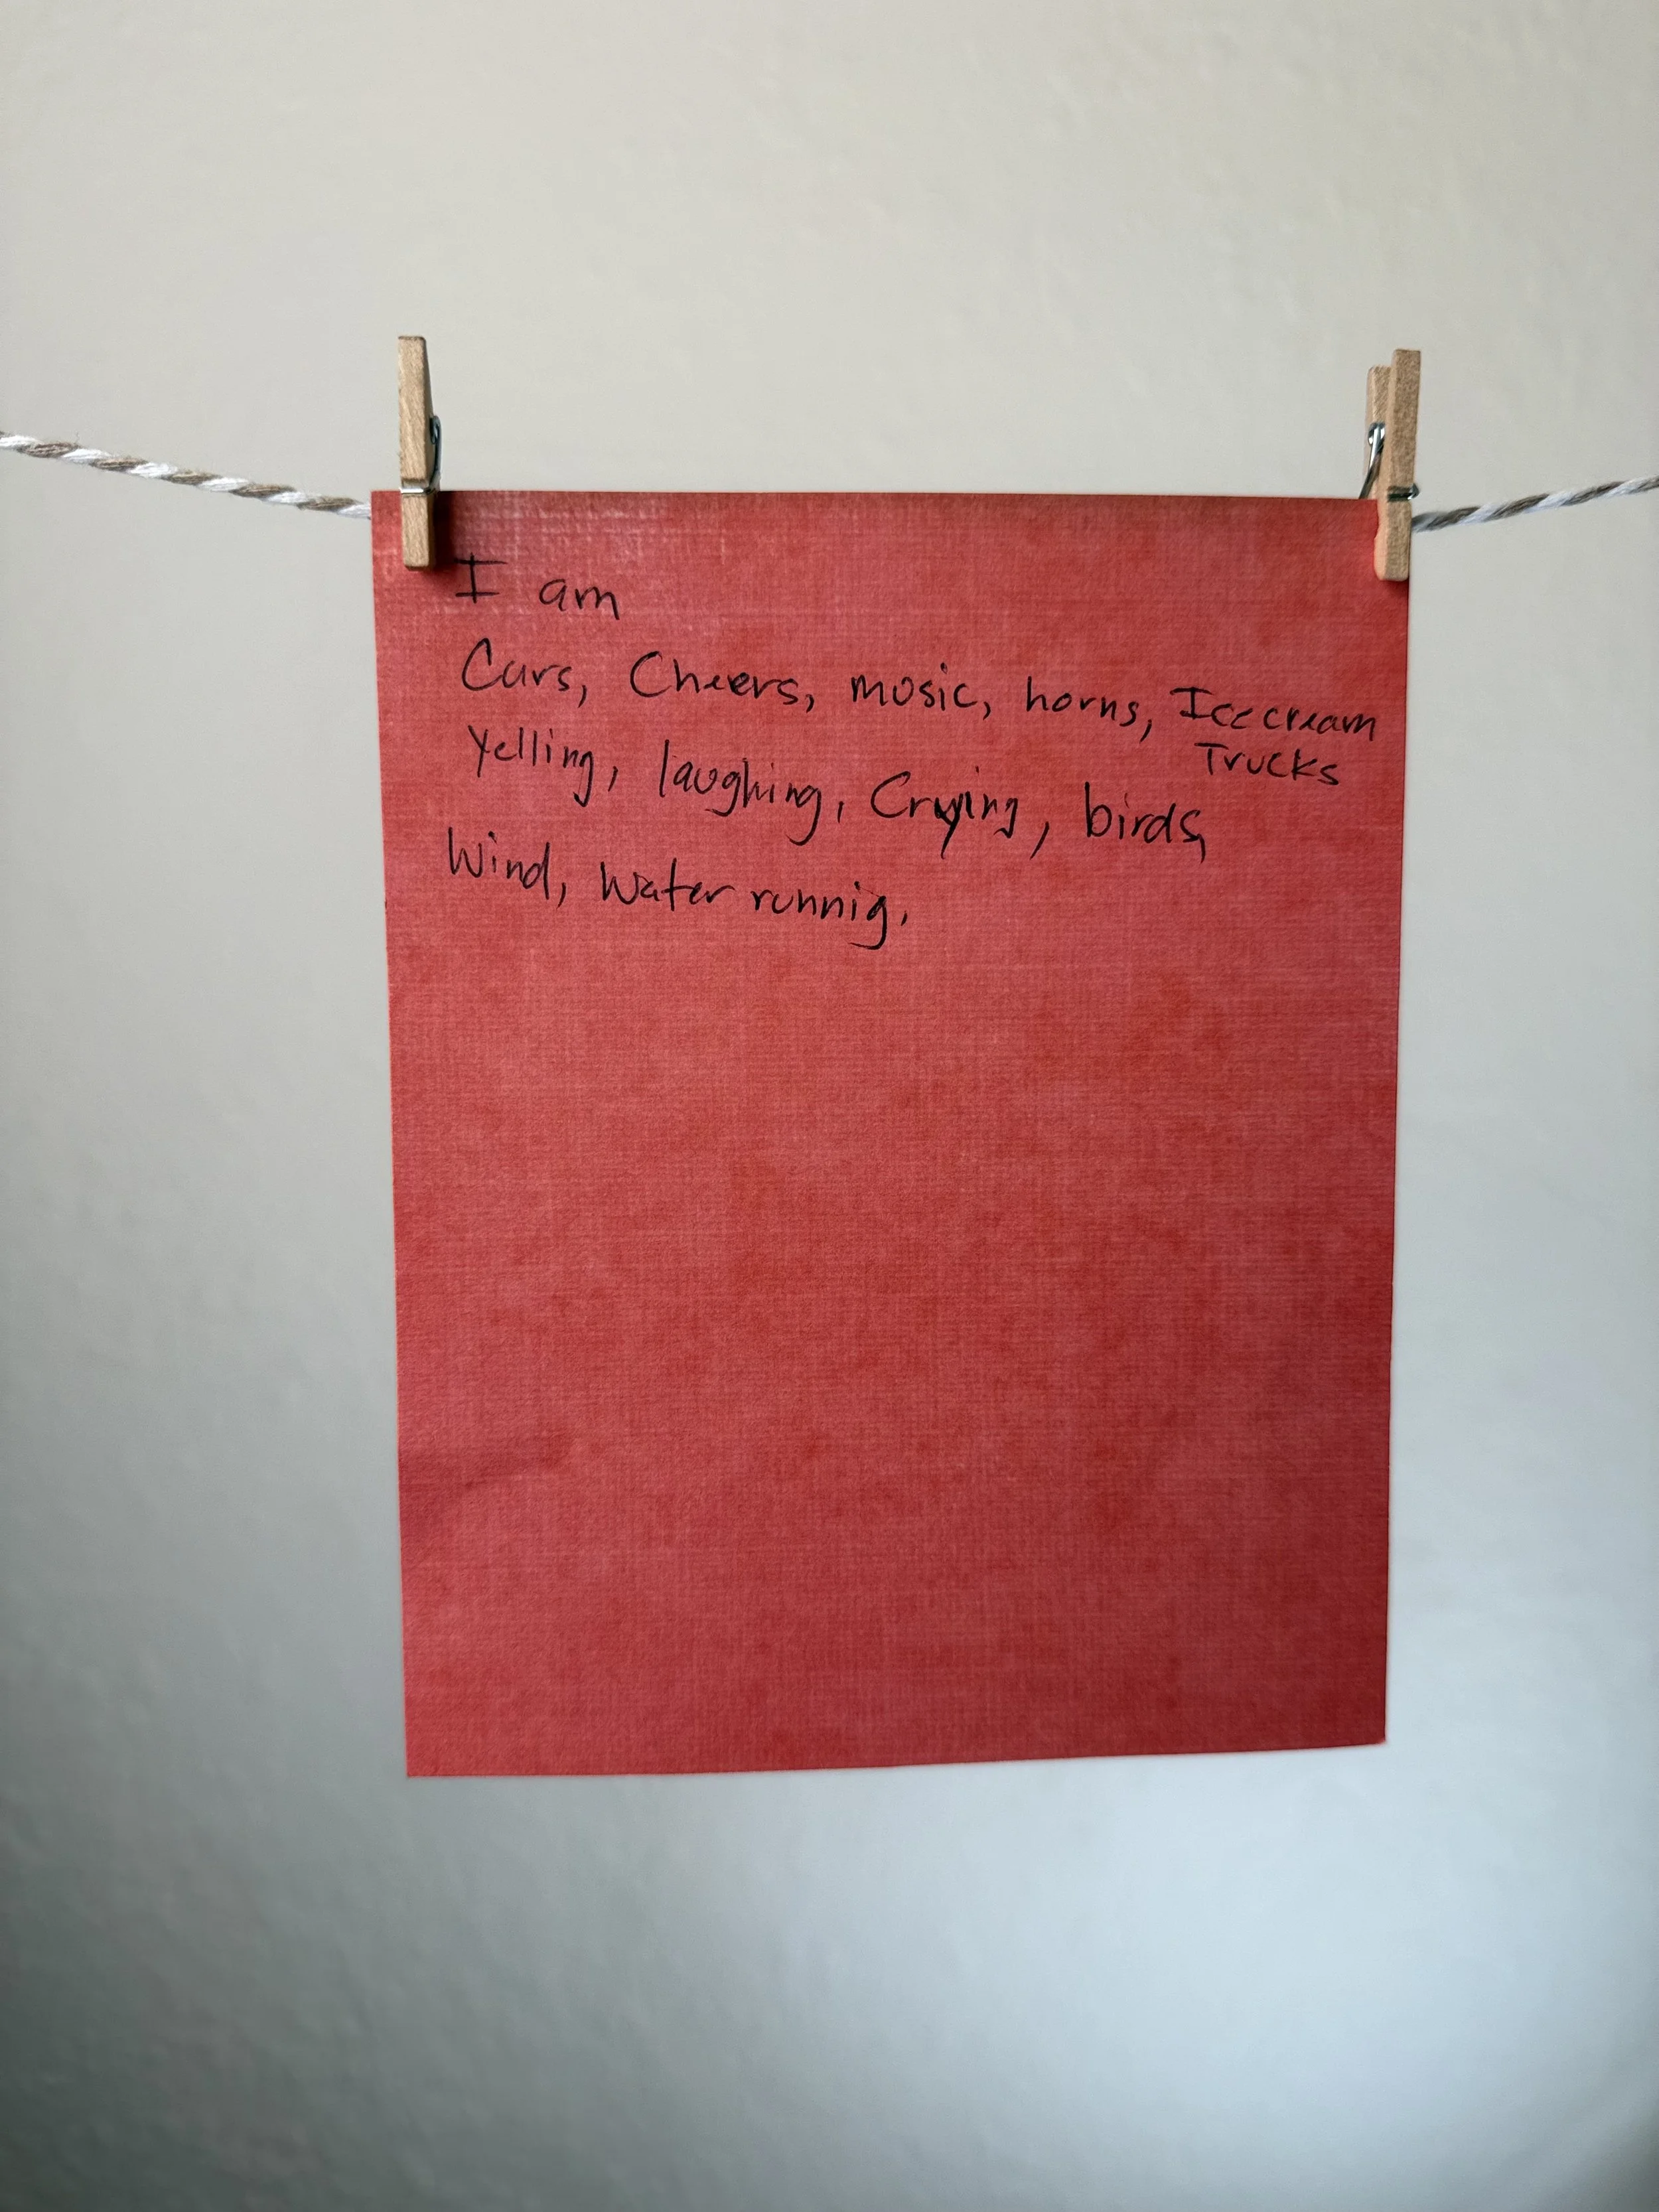 I am
Cars, Cheers, music, horns, Icecream
Trucks
Yelling, laughing, Crying, birds,
Wind, Water runnig.